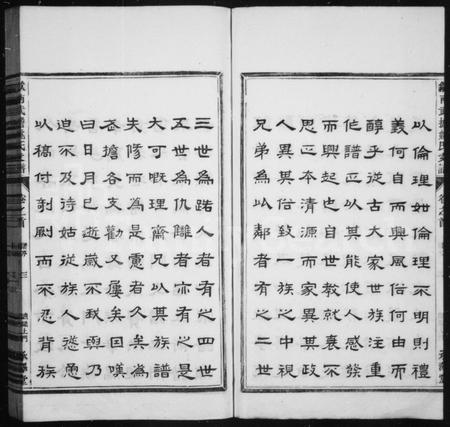 以倫理倫理不明則禮
義何自而興風俗何由而
醇乎從古大家世族注重
譜正以其能使人感發
而興起也自世教就衰不
思正本清源而家異其政
人異其俗致一族之中視
兄弟為以鄰者有之二世
三世為路人者有之四世
五世為仇讎者亦有之是
大可慨理齋兄以其族譜
失修而為是者久矣為
各支勸又屢矣因嘆
曰日月已逝歲不我與乃
迫不及待姑從族人慫恿
以稿付剞劂而不忍背族
卷之首